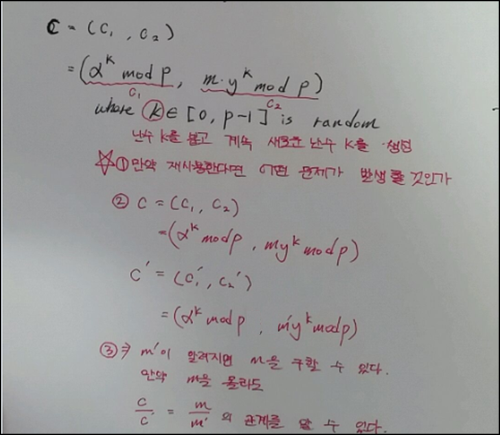 C = (C₁ , C₂)
= (α^k mod p, m·y^k mod p)
C₁ C₂
where k ∈ [0, p-1] is random
난수 k를 뽑고 계속 새로운 난수 k를 생성
☆ ① 만약 재사용한다면 어떤 문제가 발생할 것인가
② C = (C₁, C₂)
= (α^k mod p, my^k mod p)
C' = (C₁', C₂')
= (α^k mod p, m'y^k mod p)
③ ⇒ m'이 알려지면 m을 구할 수 있다.
만약 m을 몰라도
C/C = m/m' 의 관계를 알 수 있다.